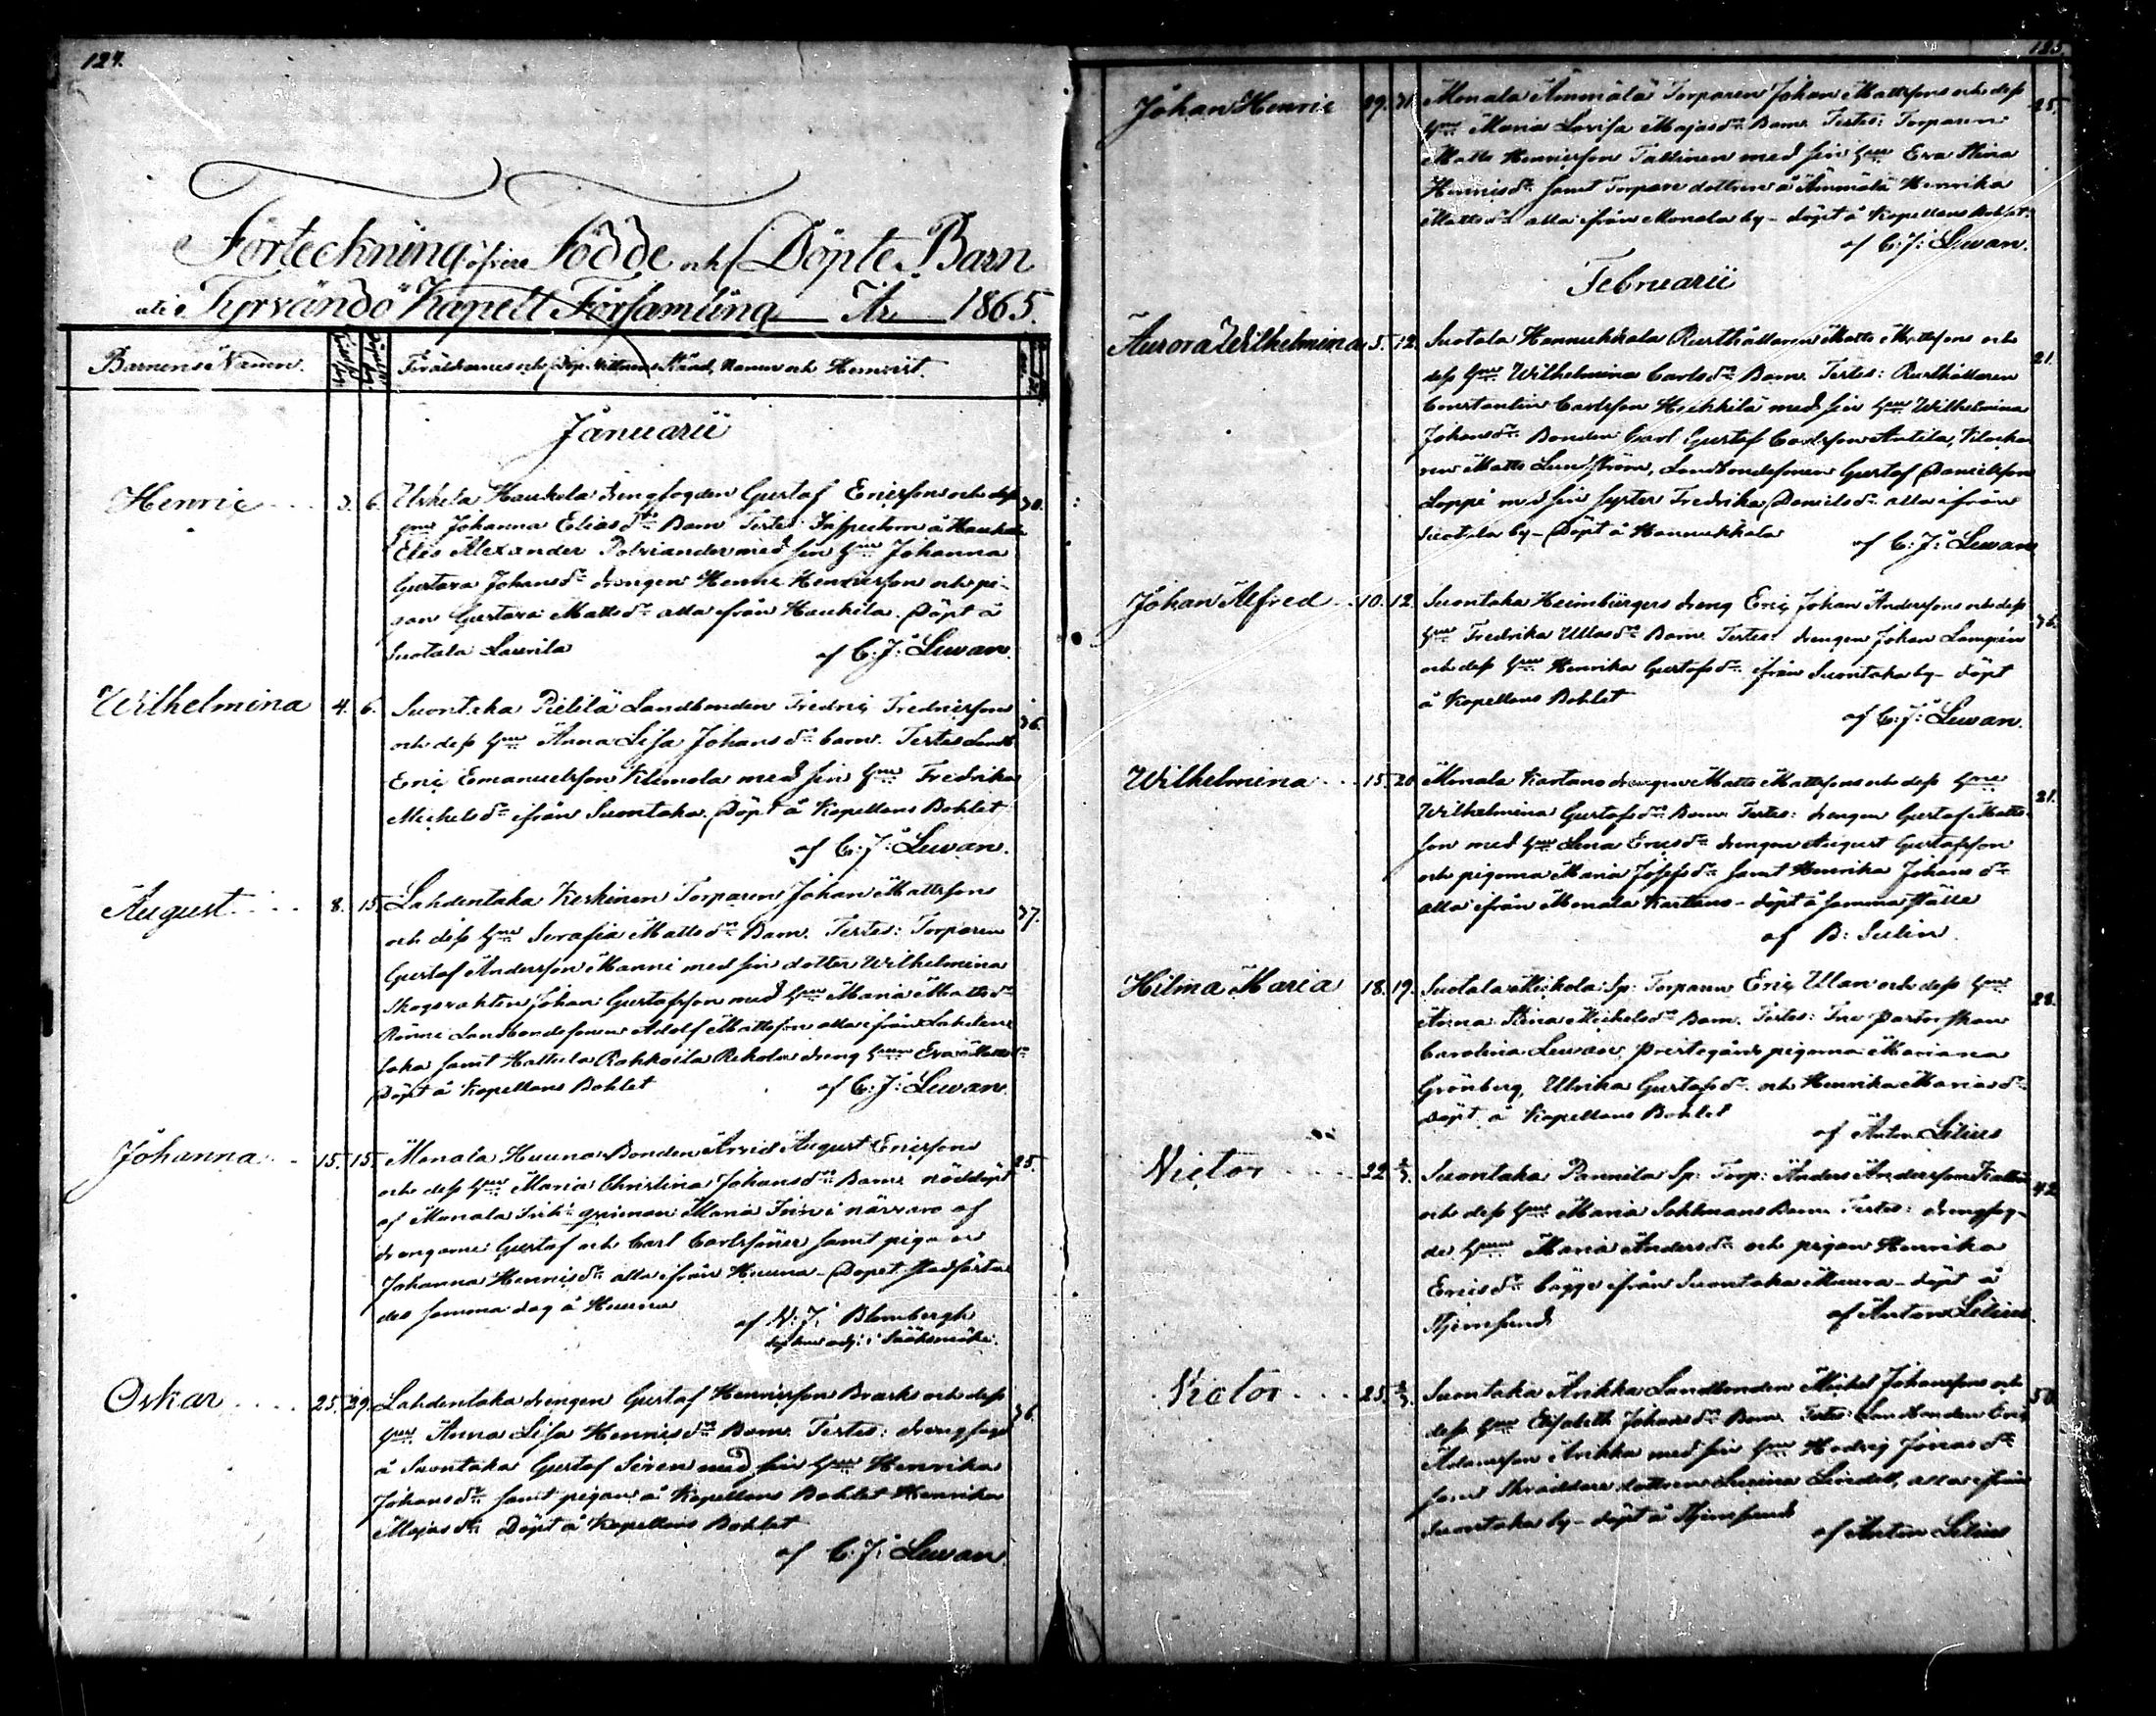 124.
Förteckning öfver Födde och Döpte Barn
uti Tyrvändö Kapell Församling År 1865.
Barnens Namn.
Föräldrarnes och Dop Vittnens Stånd, Namn och Hemvist.
Januarii
Henric 3. 6. Urhela Haukola drengfogden Gustaf Ericsons och dess 30.
Hru Johanna Eliasdr Barn Testes: Inspectorn å Haukola
Elis Alexander Polviander med sin Hru Johanna
Gustava Johansdr drengen Henric Henricsson och pi-
gan Gustava Mattsdr alla ifrån Haukila. Döpt å
Suotala Laurila af C: J: Lewan.
Wilhelmina 4. 6. Suontaka Pietilä Landbonden Fredric Fredricsons 36.
och dess Hru Anna Lisa Johansdr barn. Testes Landb.
Eric Emanuelsson Klemola med sin Hru Fredrika
Michelsdr ifrån Suontaka. Döpt å Kapellans Bohlet
af C: J: Lewan.
August 8. 15. Lahdentaka Keskinen Torparen Johan Mattsons 37.
och dess Hru Serafia Mattsdr Barn. Testes: Torparen
Gustaf Andersson Manni med sin dotter Wilhelmina
Skogvakten Johan Gustafsson med Hru Maria Mattsdr
Landbondesonen Adolf Mattsson alla ifrån Lahden-
taka samt Hattula Rahkoila Rekola dreng Hrun Eva Mattsdr
Döpt å Kapellans Bohlet af C: J: Lewan.
Johanna 15. 15. Monala Huuna Bonden Arvid August Ericsons 25.
och dess Hru Maria Christina Johansdr Barn nöddöpt
af Monala qvinnan Maria i närvaro af
drengarne Gustaf och Carl Carlssöner samt pigan
Johanna Henricsdr alla ifrån Huuna. Dopet stadfästa-
des samma dag å Huuna
af N: J: Blombergh
adj: i Sääksmäki.
Oskar 25. 29. Lahdentaka drengen Gustaf Henricsson Brasks och dess 36.
Hru Anna Lisa Henricsdr Barn. Testes: drengfogd
å Suontaka Gustaf Siren med sin Hru Henrika
Johansdr samt pigan å Kapellans Bohlet Henrika
Majasdr Döpt å Kapellans Bohlet
af C: J: Lewan
125.
Johan Henric 29. 31. Monala Ämmälä Torparen Johan Mattsons och dess 25.
Hru Maria Lovisa Majasdr Barn. Testes: Torparen
Matts Henricsson Tallinen med sin Hru Eva Stina
Henricsdr samt Torpare dottren å Ämmälä Henrika
Mattsdr alla ifrån Monala by - döpt å Kapellans Bohlet.
af C: J: Lewan.
Februarii
Aurora Wilhelmina 5. 12. Suotala Hannukkala Rusthållaren Matts Mattsons och 21.
dess Hru Wilhelmina Carlsdr Barn. Testes: Rusthållaren
Constantin Carlsson Heikkilä med sin Hru Wilhelmina
Johansdr. Bonden Carl Gustaf Carlsson Antila, Klocka-
ren Matts Lundström, Landbondesonen Gustaf Danielsson
Loppi med sin syster Fredrika Danielsdr alla ifrån
Suotala by - Döpt å Hannukkala af C: J: Lewan
Johan Alfred 10. 12. Suontaka Heimbürgers dreng Eric Johan Anderssons och dess 36.
Hru Fredrika Ullasdr Barn. Testes: drengen Johan Lampén
och dess Hru Henrika Gustafsdr ifrån Suontaka by - döpt
å Kapellans Bohlet
af C: J: Lewan.
Wilhelmina 15. 20 Monala Kartano drengen Matts Mattsons och dess Hru 21.
Wilhelmina Gustafsdr Barn. Testes: drengen Gustaf Matts-
son med Hru Lena Ericsdr drengen August Gustafsson
och pigorna Maria Josefsdr samt Henrika Johansdr
alla ifrån Monala Kartano - döpt å samma ställe
af B: Sulin.
Hilma Maria 18. 19. Suotala Mickola Sp: Torparen Eric Ulan och dess Hru 28.
Anna Stina Michelsdr Barn. Testes: Fru Pastorskan
Carolina Lewan, prestegårds pigorna Mariana
Grönberg, Ulrika Gustafsdr och Henrika Mariasdr
döpt å Kapellans Bohlet
af Anton Lilius
Victor 22 Suontaka Pannila Sp: Torp: Anders Andersson 42
och dess Hru Maria Sohlmans Barn. Testes: drengfog-
de Hrun Maria Andersdr och pigan Henrika
Ericsdr bägge ifrån Suontaka Muura - döpt å
Stjernsund af Anton Lilius
Victor 25. Suontaka Arikka Landbonden Michel Johanssons och 50.
dess Hru Elisabeth Johansdr Barn. Testes: Landbonden Eric
Adamsson Arikka med sin Hru Hedvig Jonasdr
samt Skräddare dottren Lindell, alla ifrån
Suontaka by - döpt å Stjernsund
af Anton Lilius